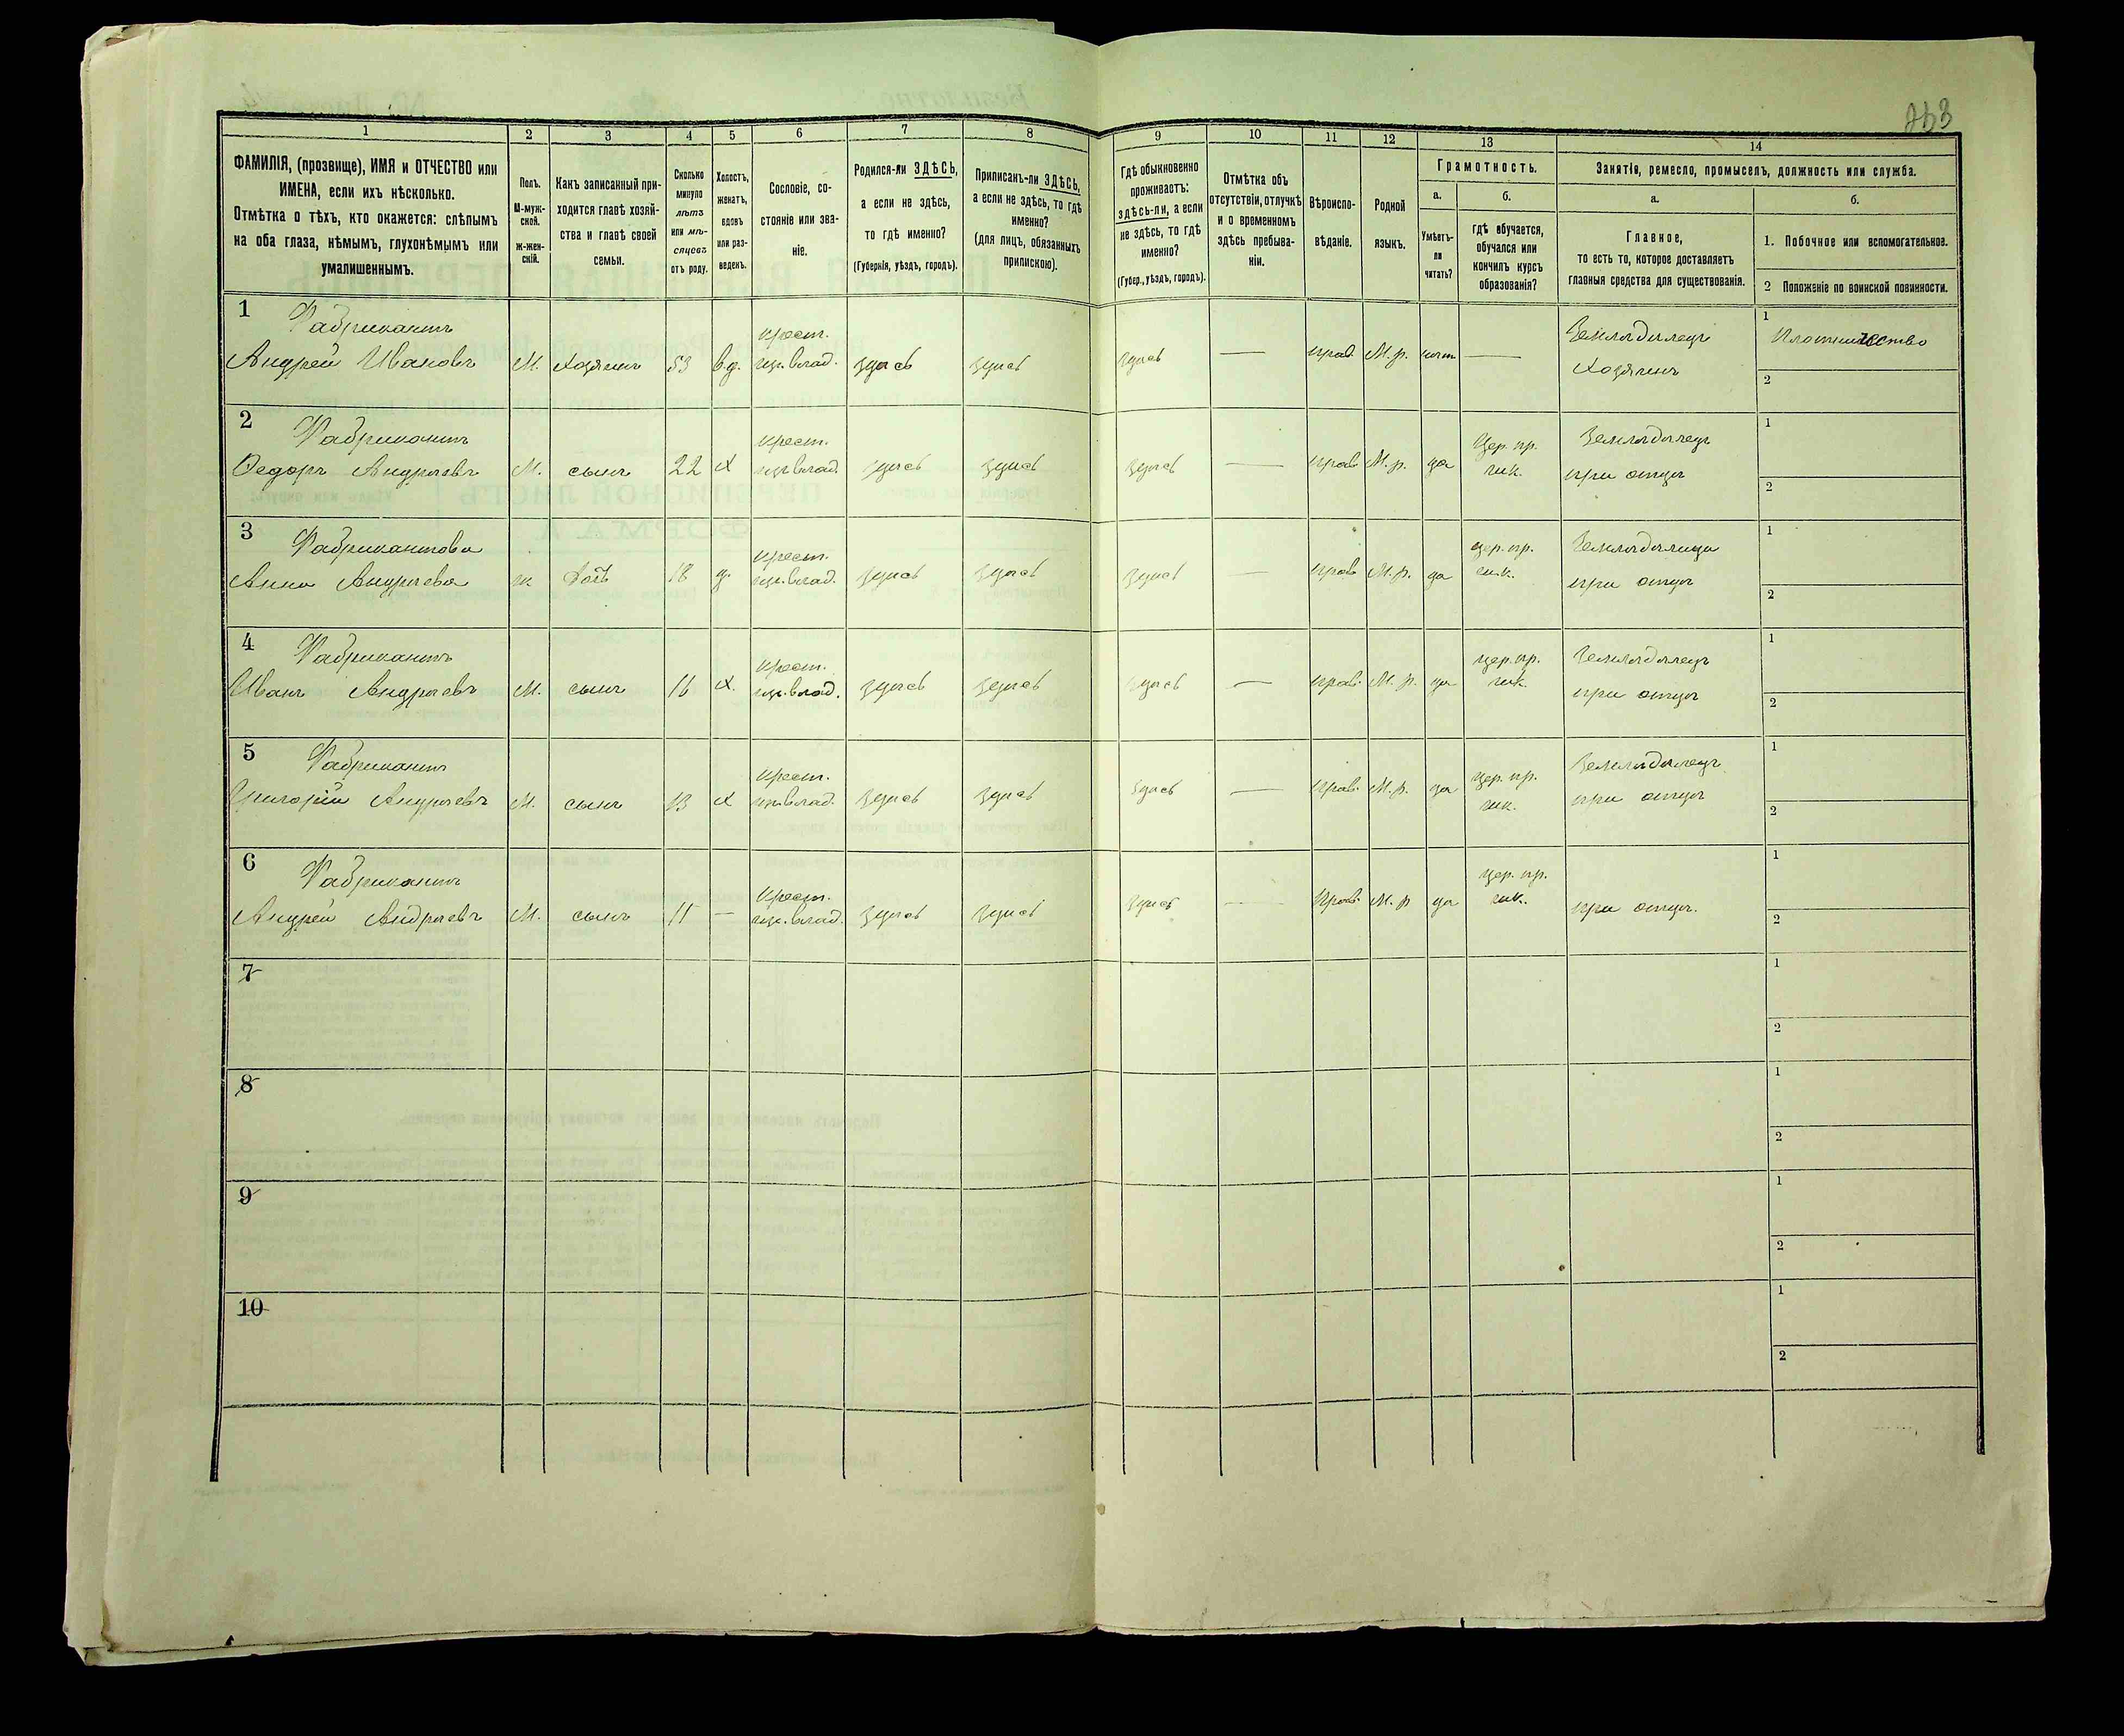 343
1
2
3
4
5
6
7
8
9
10
11
12
13
14
ФАМИЛІЯ, (прозвище), ИМЯ и ОТЧЕСТВО или
ИМЕНА, если ихъ нѣсколько.
Отмѣтка о тѣхъ, кто окажется: слѣпымъ
на оба глаза, нѣмымъ, глухонѣмымъ или
умалишеннымъ.
Полъ.
М-муж-
ской.
ж-жен-
скій.
Какъ записанный при-
ходится главѣ хозяй-
ства и главѣ своей
семьи.
Сколько
минуло
лѣтъ
или мѣ-
сяцевъ
отъ роду.
Холостъ,
женатъ,
вдовъ
или раз-
веденъ.
Сословіе, со-
стояніе или зва-
ніе.
Родился-ли ЗДѢСЬ,
а если не здѣсь,
то гдѣ именно?
(Губернія, уѣздъ, городъ).
Приписанъ-ли ЗДѢСЬ,
а если не здѣсь, то гдѣ
именно?
(для лицъ, обязанныхъ
припискою).
Гдѣ обыкновенно
проживаетъ:
здѣсь-ли, а если
не здѣсь, то гдѣ
именно?
(Губер., уѣздъ, городъ).
Отмѣтка объ
отсутствіи, отлучкѣ
и о временномъ
здѣсь пребыва-
ніи.
Вѣроиспо-
вѣданіе.
Родной
языкъ.
Грамотность.
а.
Умѣетъ-
ли
читать?
б.
гдѣ обучается,
обучался или
кончилъ курсъ
образованія?
Занятія, ремесло, промыселъ, должность или служба.
а.
Главное,
то есть то, которое доставляетъ
главныя средства для существованія.
б.
1. Побочное или вспомогательное.
2 Положеніе по воинской повинности.
1 Фабрикантъ
Андрей Ивановъ М. Хозяинъ 53 вд. крест. здѣсь здѣсь здѣсь — прав. М. р. — Земледѣлецъ Хозяинъ 1 Плотничество
2
2 Фабрикантъ
Ѳедоръ Андреевъ М. сынъ 22 х крест. здѣсь здѣсь здѣсь — прав. М. р. да Цер. пр. шк. Земледѣлецъ при отцѣ 1
2
3 Фабрикантова
Анна Андреева ж дочь 18 д. крест. здѣсь здѣсь здѣсь — прав. М. р. да цер. пр. шк. Земледѣлица при отцѣ 1
2
4 Фабрикантъ
Иванъ Андреевъ М. сынъ 16 х. крест. здѣсь здѣсь здѣсь — прав. М. р. да цер. пр. шк. Земледѣлецъ при отцѣ 1
2
5 Фабрикантъ
Григорій Андреевъ М. сынъ 13 х крест. здѣсь здѣсь здѣсь — прав. М. р. да цер. пр. шк. Земледѣлецъ при отцѣ 1
2
6 Фабрикантъ
Андрей Андреевъ М. сынъ 11 — крест. здѣсь здѣсь здѣсь — Прав. М. р да цер. пр. шк. при отцѣ. 1
2
7
1
2
8
1
2
9
1
2
10
1
2